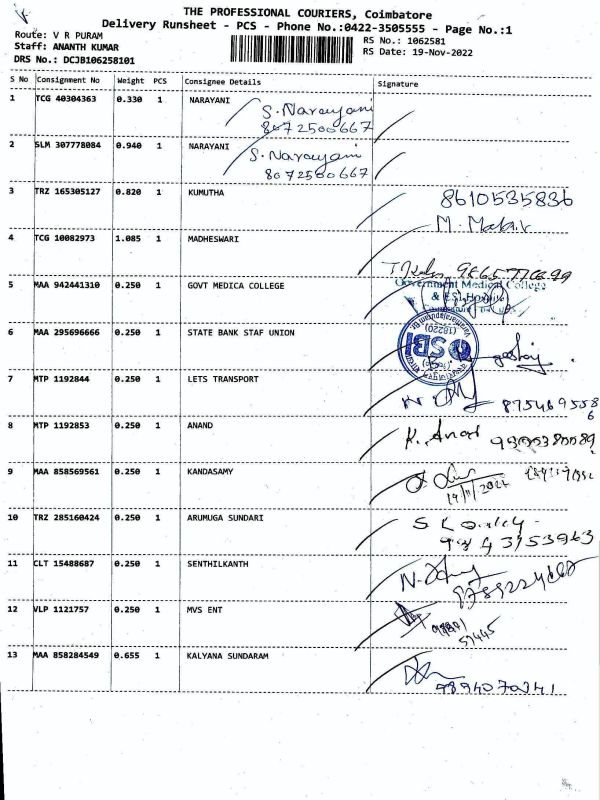 THE PROFESSIONAL COURIERS, Coimbatore
Delivery Runsheet - PCS - Phone No.:0422-3505555 - Page No.:1
Route: V R PURAM
Staff: ANANTH KUMAR
DRS No.: DCJB106258101
RS No.: 1062581
RS Date: 19-Nov-2022
S No Consignment No Weight PCS Consignee Details Signature
1 TCG 40304363 0.330 1 NARAYANI
S. Narayani
8072500667
2 SLM 307778084 0.940 1 NARAYANI
S. Narayani
8072500667
3 TRZ 165305127 0.820 1 KUMUTHA
8610535836
4 TCG 10082973 1.085 1 MADHESWARI
5 MAA 942441310 0.250 1 GOVT MEDICA COLLEGE
Government Medical College
& ESI Hospital
6 MAA 295696666 0.250 1 STATE BANK STAF UNION
SBI
(18229)
7 MTP 1192844 0.250 1 LETS TRANSPORT
8754695586
8 MTP 1192853 0.250 1 ANAND
K. Anand
9 MAA 858569561 0.250 1 KANDASAMY
10 TRZ 285160424 0.250 1 ARUMUGA SUNDARI
11 CLT 15488687 0.250 1 SENTHILKANTH
12 VLP 1121757 0.250 1 MVS ENT
13 MAA 858284549 0.655 1 KALYANA SUNDARAM